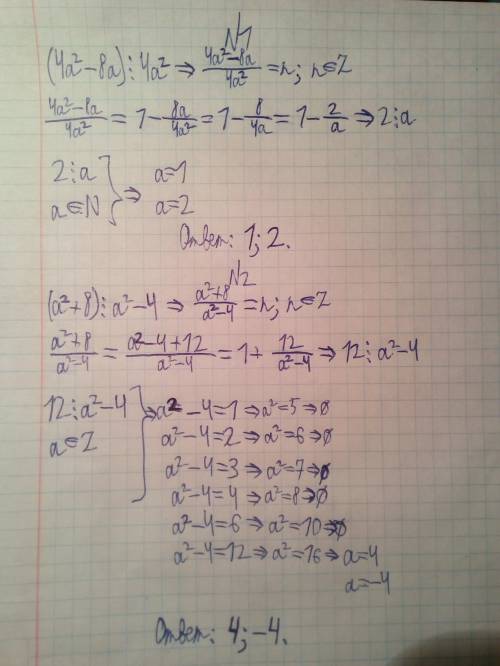 N1
(4a²-8a)⋮4a² ⇒ (4a²-8a)/(4a²) = n; n∈Z
(4a²-8a)/(4a²) = 1 - 8a/(4a²) = 1 - 8/(4a) = 1 - 2/a ⇒ 2⋮a
2⋮a } ⇒ a=1
a∈N a=2
Ответ: 1; 2.
N2
(a²+8)⋮a²-4 ⇒ (a²+8)/(a²-4) = n; n∈Z
(a²+8)/(a²-4) = (a²-4+12)/(a²-4) = 1 + 12/(a²-4) ⇒ 12⋮a²-4
12⋮a²-4 } ⇒ a²-4=1 ⇒ a²=5 ⇒ ∅
a∈Z a²-4=2 ⇒ a²=6 ⇒ ∅
a²-4=3 ⇒ a²=7 ⇒ ∅
a²-4=4 ⇒ a²=8 ⇒ ∅
a²-4=6 ⇒ a²=10 ⇒ ∅
a²-4=12 ⇒ a²=16 ⇒ a=4
a=-4
Ответ: 4; -4.